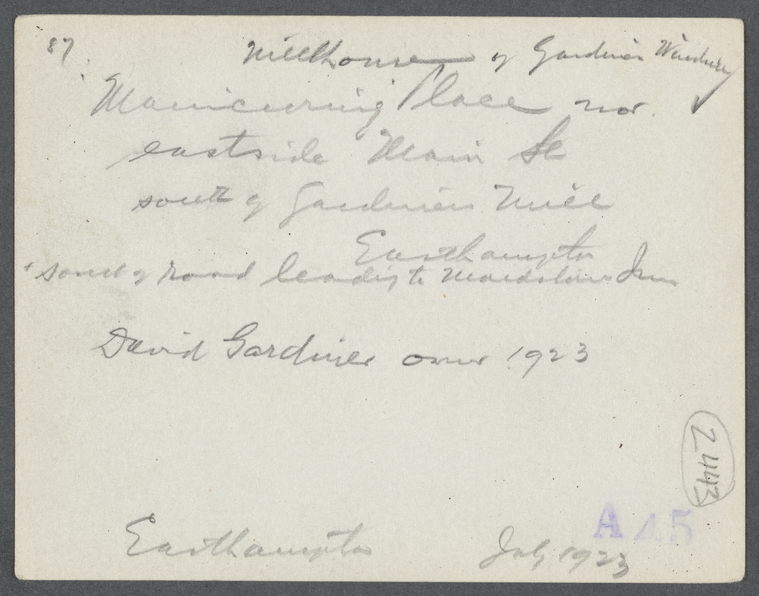 87
Millhouse of Gardiner Windmill
Place
eastside Main St
south of Gardiner Mill
Easthampton
south of road leading to Maidstone Inn
David Gardiner owner 1923
2443
A 45
Easthampton July 1923